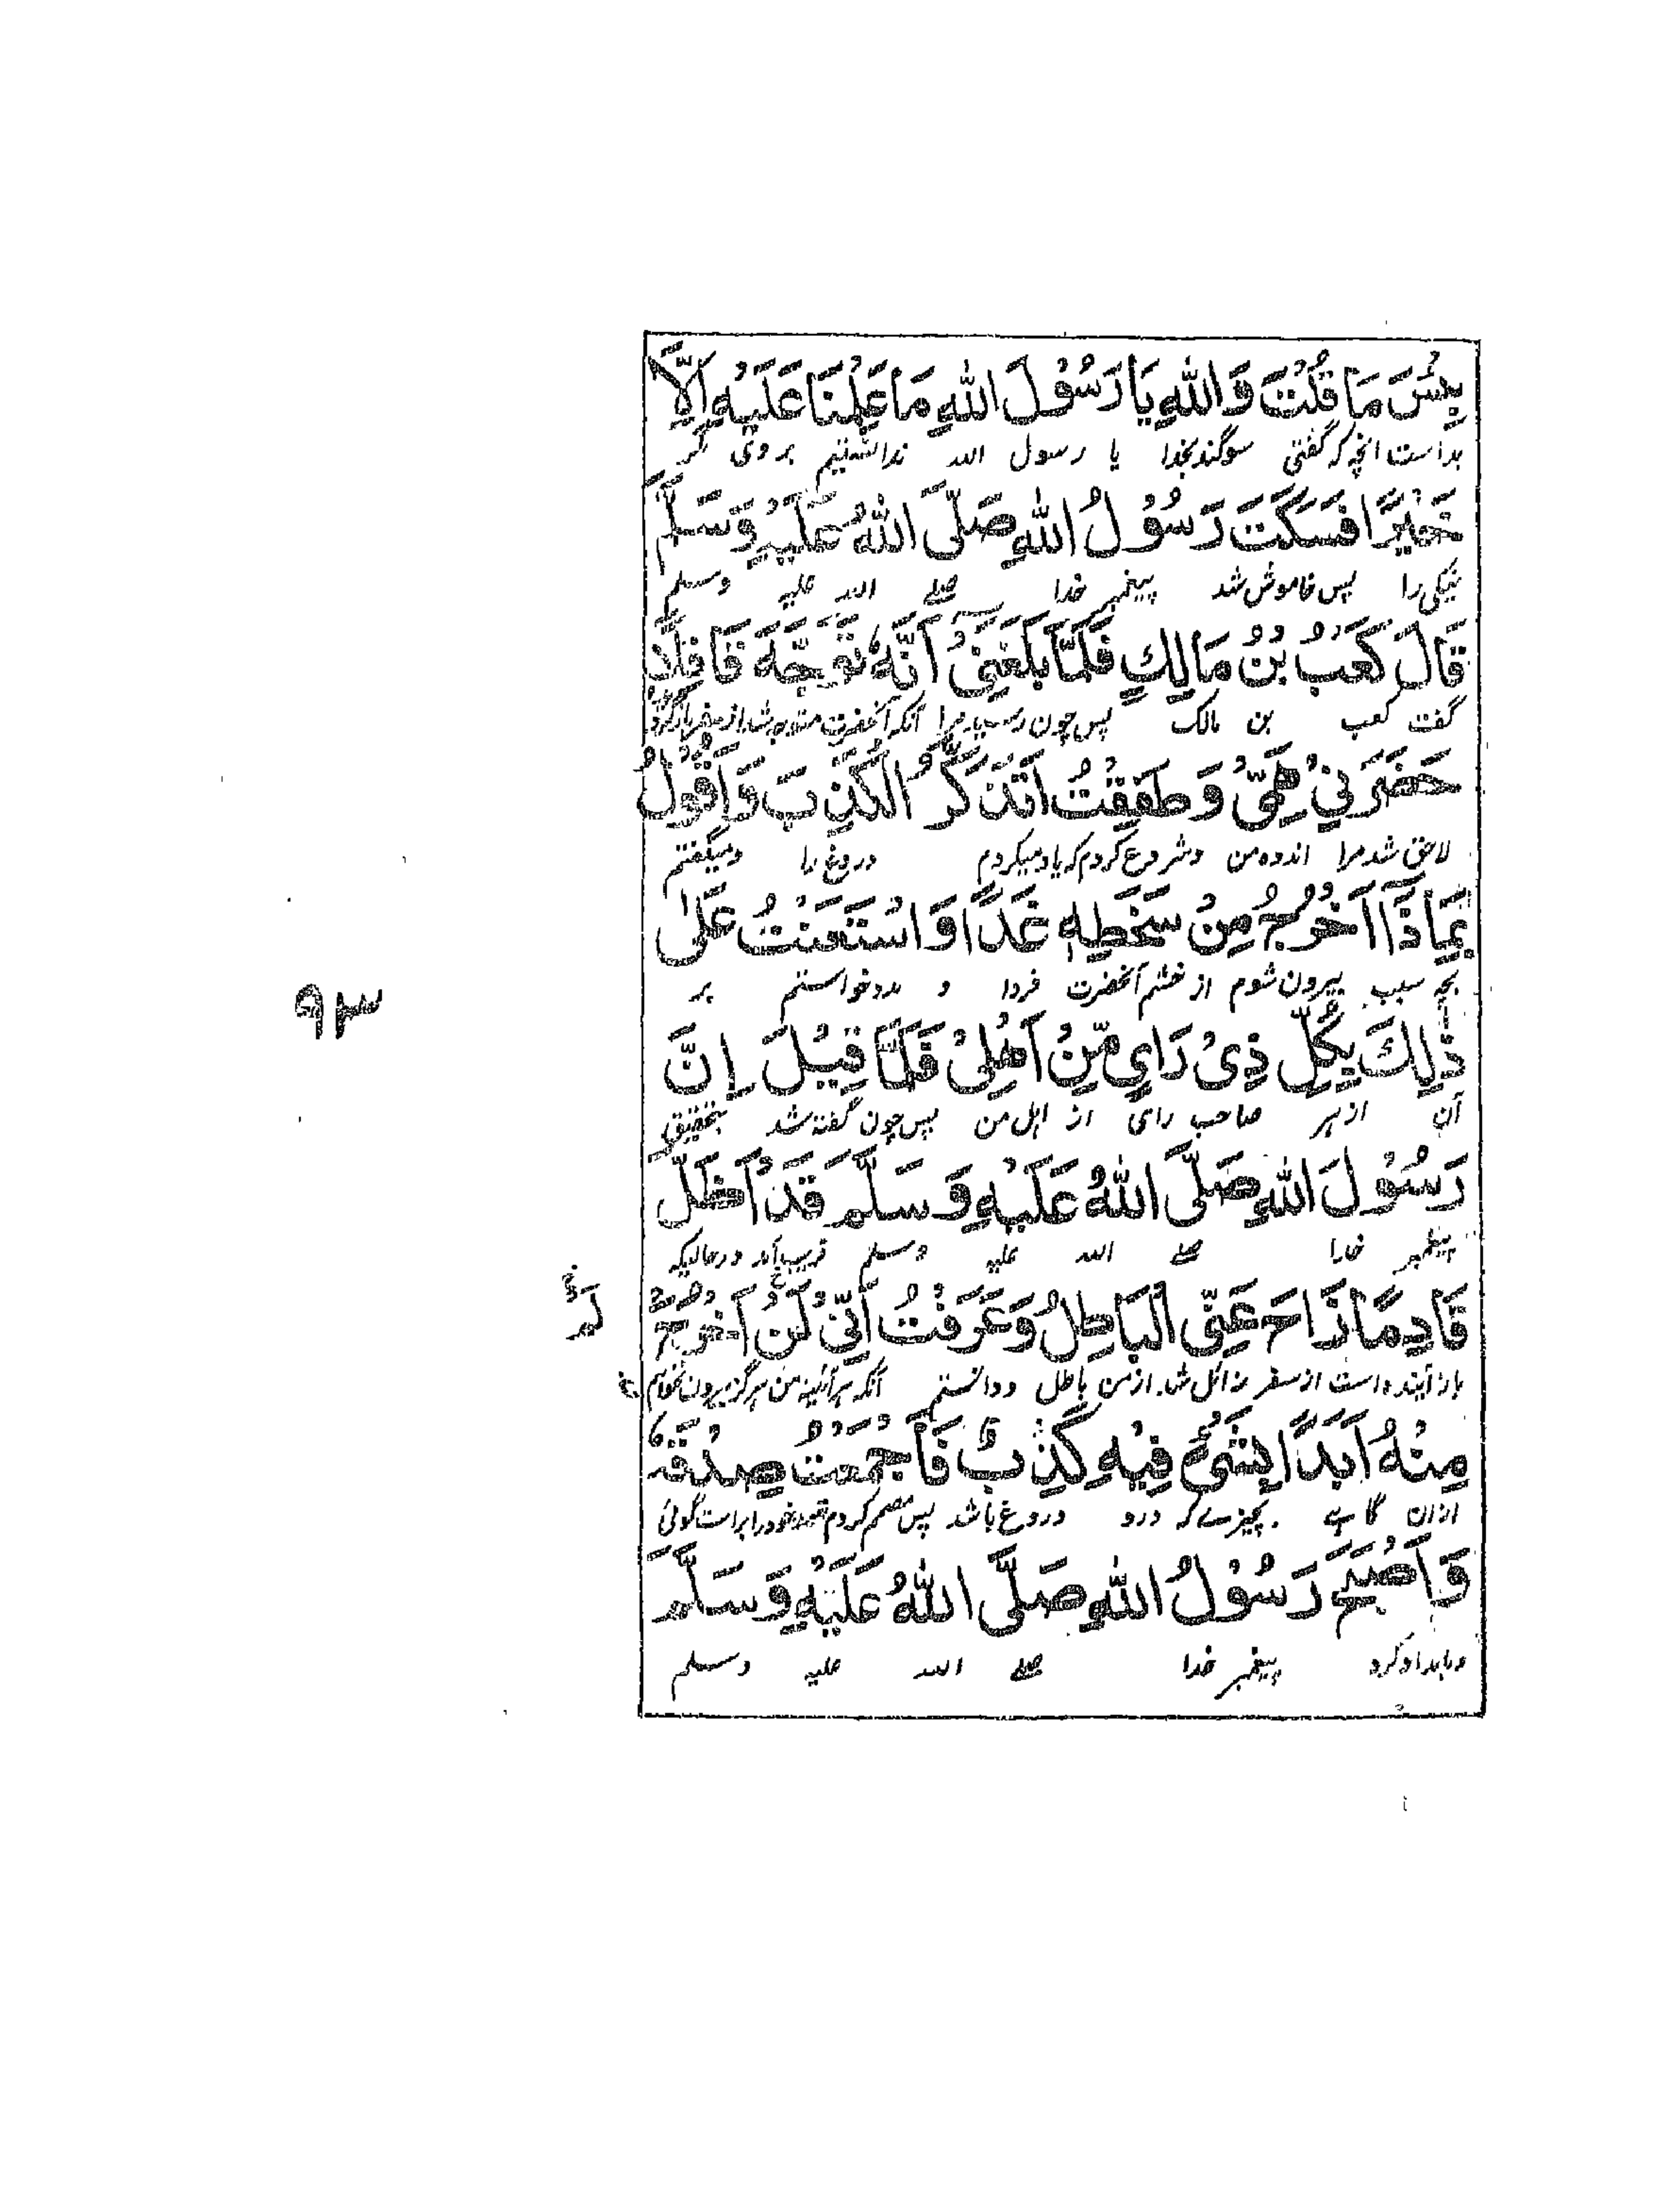 بِئْسَ مَا قُلْتَ وَاللّٰهِ يَا رَسُوْلَ اللّٰهِ مَا عَلِمْنَا عَلَيْهِ اِلَّا
بداست انچه که گفتی سوگند بخدا یا رسول الله ندانستیم بر وی مگر
خَيْرًا فَسَكَتَ رَسُوْلُ اللّٰهِ صَلَّى اللّٰهُ عَلَيْهِ وَسَلَّمَ
نیکی را پس خاموش شد پیغمبر خدا صلے الله علیه وسلم
قَالَ كَعْبُ بْنُ مَالِكٍ فَلَمَّا بَلَغَنِيْ اَنَّهٗ تَوَجَّهَ قَافِلًا
گفت کعب بن مالک پس چون رسید مرا آنکه آنحضرت متوجه شد از سفر بازگردنده
حَضَرَنِيْ هَمِّيْ وَطَفِقْتُ اَتَذَكَّرُ الْكَذِبَ وَاَقُوْلُ
لاحق شد مرا اندوه من و شروع کردم که یاد میکردم دروغ را ومیگفتم
بِمَاذَا اَخْرُجُ مِنْ سَخَطِهٖ غَدًا وَاسْتَعَنْتُ عَلٰى
بچه سبب بیرون شوم از خشم آنحضرت فردا و مدد خواستم بر
ذٰلِكَ بِكُلِّ ذِيْ رَاْيٍ مِّنْ اَهْلِيْ فَلَمَّا قِيْلَ اِنَّ
آن از هر صاحب رای از اهل من پس چون گفته شد بتحقیق
رَسُوْلَ اللّٰهِ صَلَّى اللّٰهُ عَلَيْهِ وَسَلَّمَ قَدْ اَظَلَّ
پیغمبر خدا صلے الله علیه وسلم قریب آمد در حالیکه
قَادِمًا زَاحَ عَنِّى الْبَاطِلُ وَعَرَفْتُ اَنِّيْ لَنْ اَخْرُجَ
باز آینده است از سفر زائل شد از من باطل و دانستم آنکه هر آئینه من هرگز بیرون نخواهم
مِنْهُ اَبَدًا بِشَيْءٍ فِيْهِ كَذِبٌ فَاَجْمَعْتُ صِدْقَهٗ
ازان گاہے بچیزے که درو دروغ باشد پس مصمم کردم قصد خود را براست گوئی
وَاَصْبَحَ رَسُوْلُ اللّٰهِ صَلَّى اللّٰهُ عَلَيْهِ وَسَلَّمَ
وبامداد کرد پیغمبر خدا صلے الله علیه وسلم
۹۳